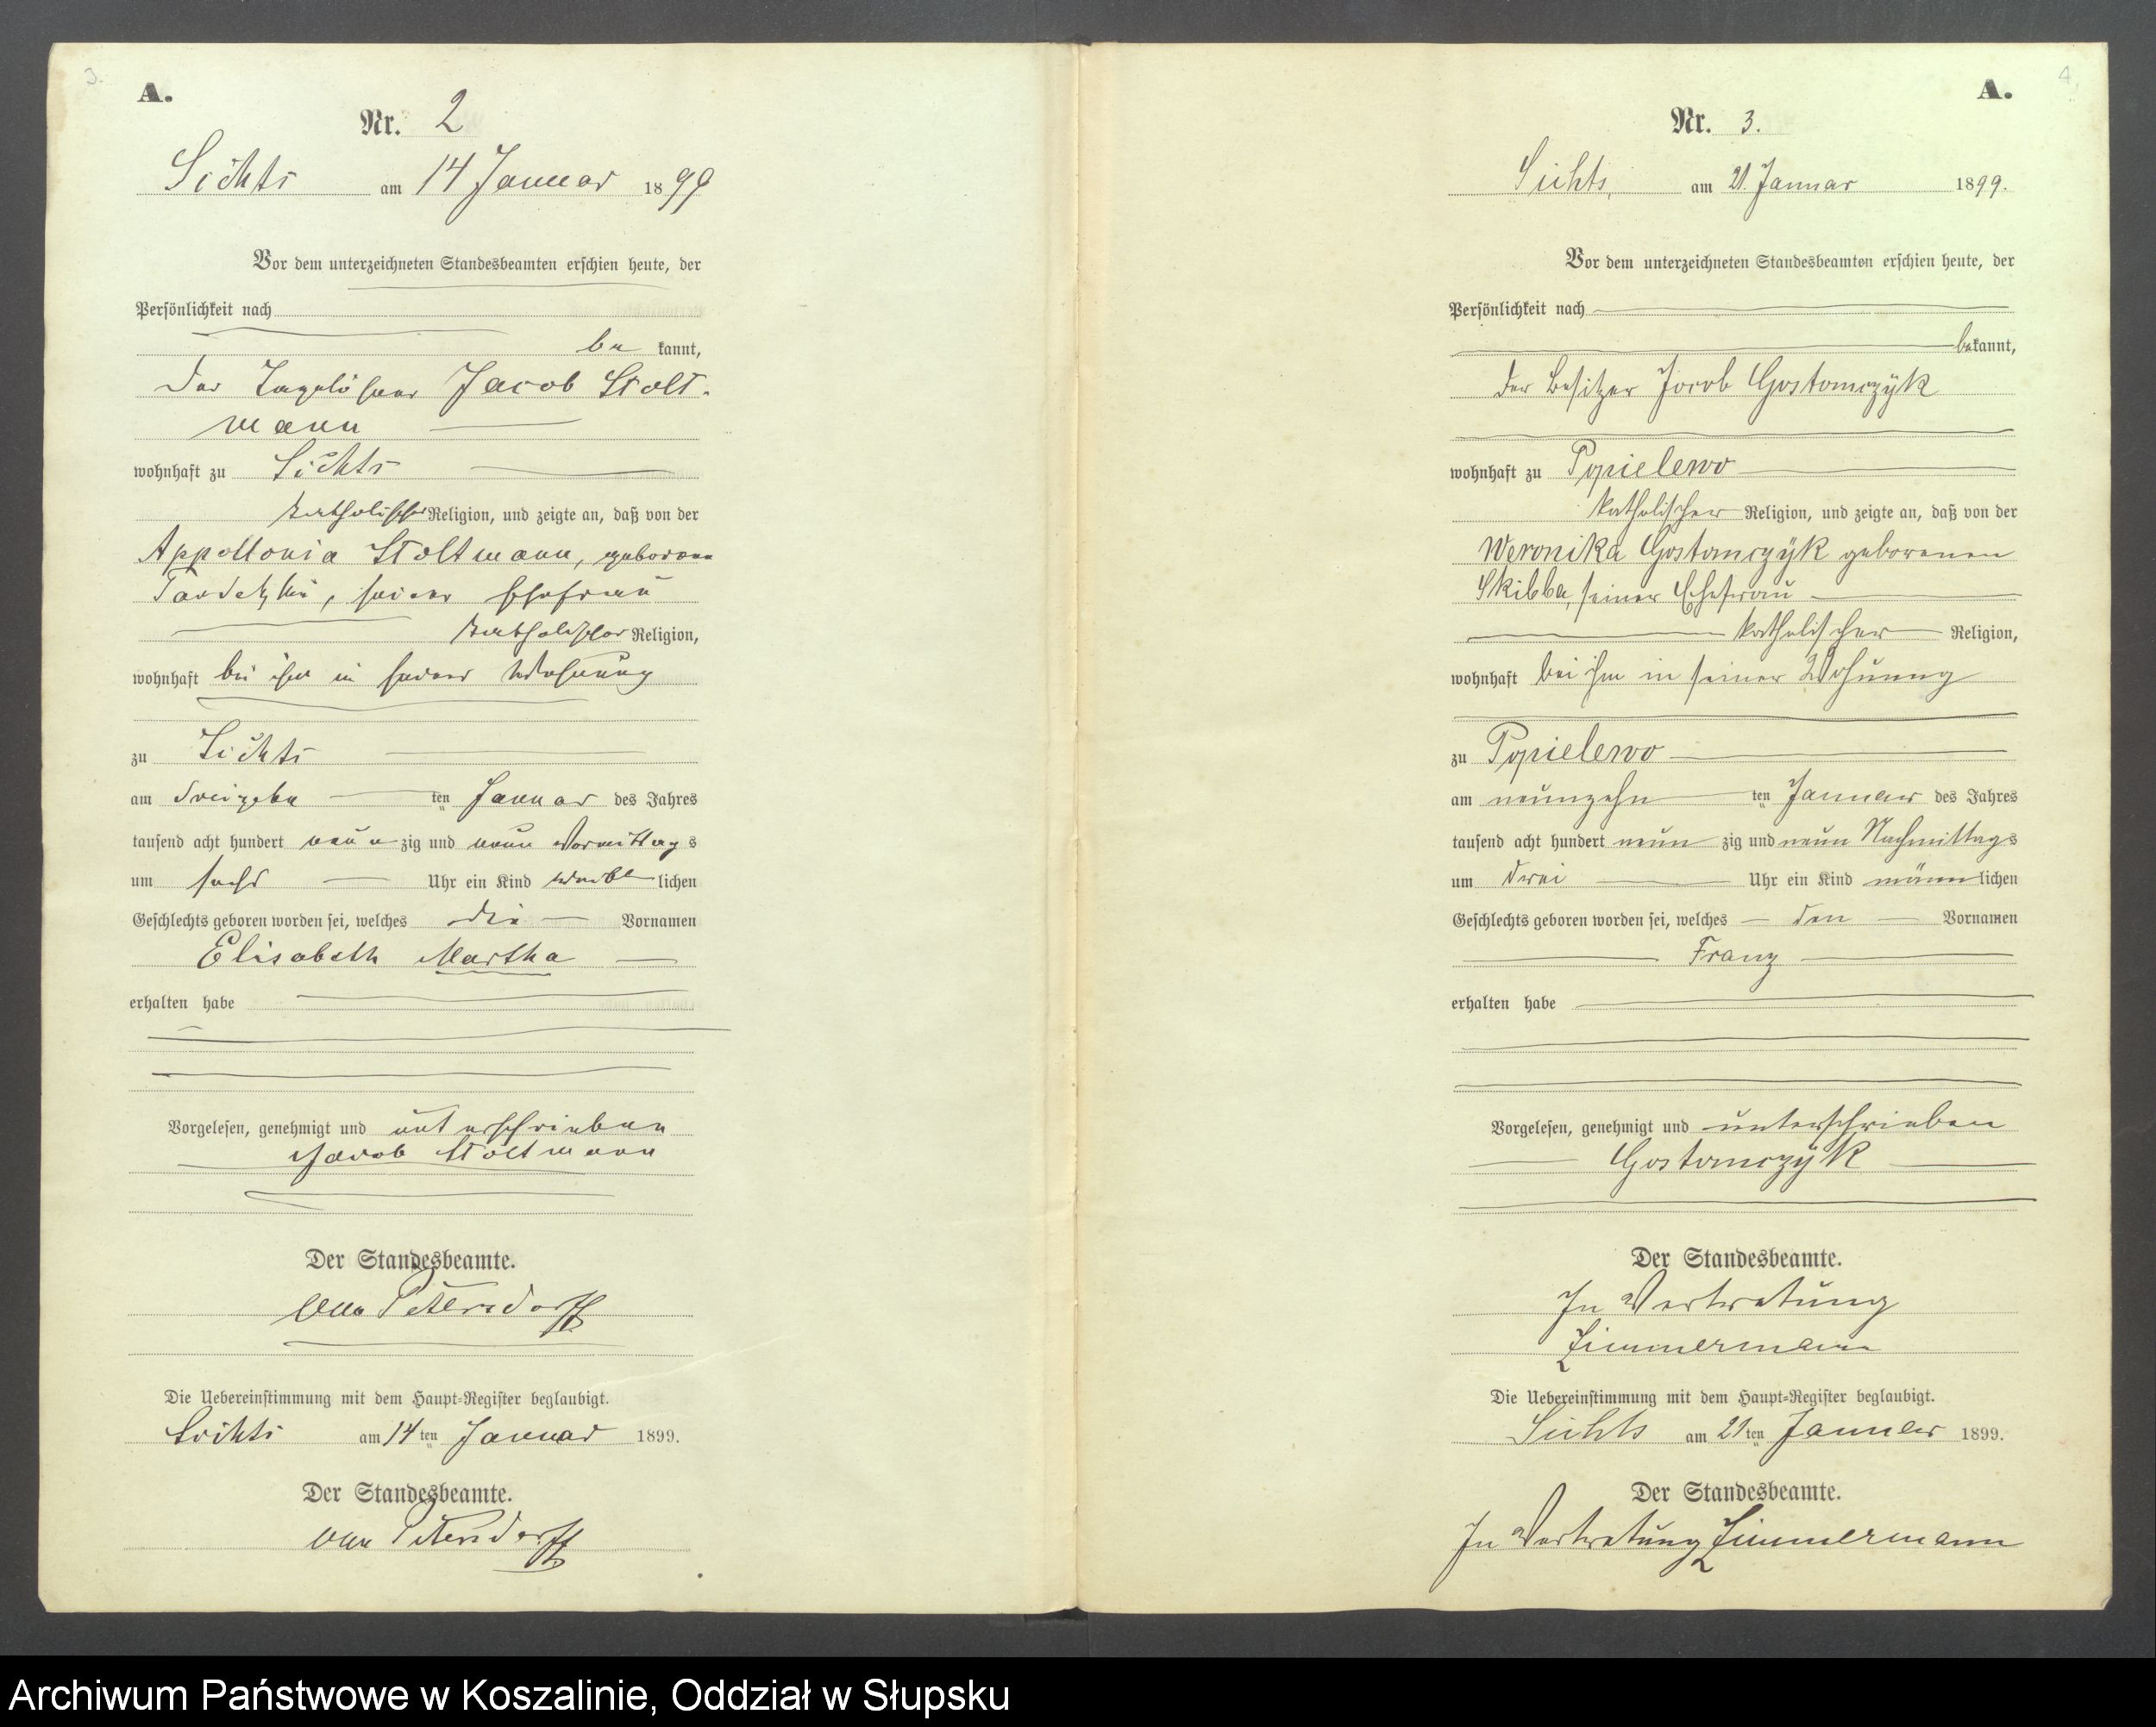 3.
A.
Nr. 2
Sichts am 14 Januar 1899
Vor dem unterzeichneten Standesbeamten erschien heute, der
Persönlichkeit nach
be kannt,
der Tagelöhner Jacob Stolt-
mann
wohnhaft zu Sichts
katholischer Religion, und zeigte an, daß von der
Appollonia Stoltmann, geborene
seiner Ehefrau
katholischer Religion,
wohnhaft bei ihm in seiner Wohnung
zu Sichts
am dreizehn ten Januar des Jahres
tausend acht hundert neun zig und neun Vormittags
um sechs Uhr ein Kind weib lichen
Geschlechts geboren worden sei, welches die Vornamen
Elisabeth Martha
erhalten habe
Vorgelesen, genehmigt und unterschrieben
Jacob Stoltmann
Der Standesbeamte.
von Petersdorff
Die Uebereinstimmung mit dem Haupt-Register beglaubigt.
Sichts am 14 ten Januar 1899.
Der Standesbeamte.
von Petersdorff
4.
A.
Nr. 3.
Sichts, am 21. Januar 1899.
Vor dem unterzeichneten Standesbeamten erschien heute, der
Persönlichkeit nach
bekannt,
der Besitzer Jacob Gostomczÿk
wohnhaft zu Popielewo
katholischer Religion, und zeigte an, daß von der
Weronika Gostomczÿk geborenen
Skibba, seiner Ehefrau
katholischer Religion,
wohnhaft bei ihm in seiner Wohnung
zu Popielewo
am neunzehn ten Januar des Jahres
tausend acht hundert neun zig und neun Nachmittags
um drei Uhr ein Kind männlichen
Geschlechts geboren worden sei, welches den Vornamen
Franz
erhalten habe
Vorgelesen, genehmigt und unterschrieben
Gostomczÿk
Der Standesbeamte.
In Vertretung
Zimmermann
Die Uebereinstimmung mit dem Haupt-Register beglaubigt.
Sichts am 21 ten Januar 1899.
Der Standesbeamte.
In Vertretung Zimmermann
Archiwum Państwowe w Koszalinie, Oddział w Słupsku